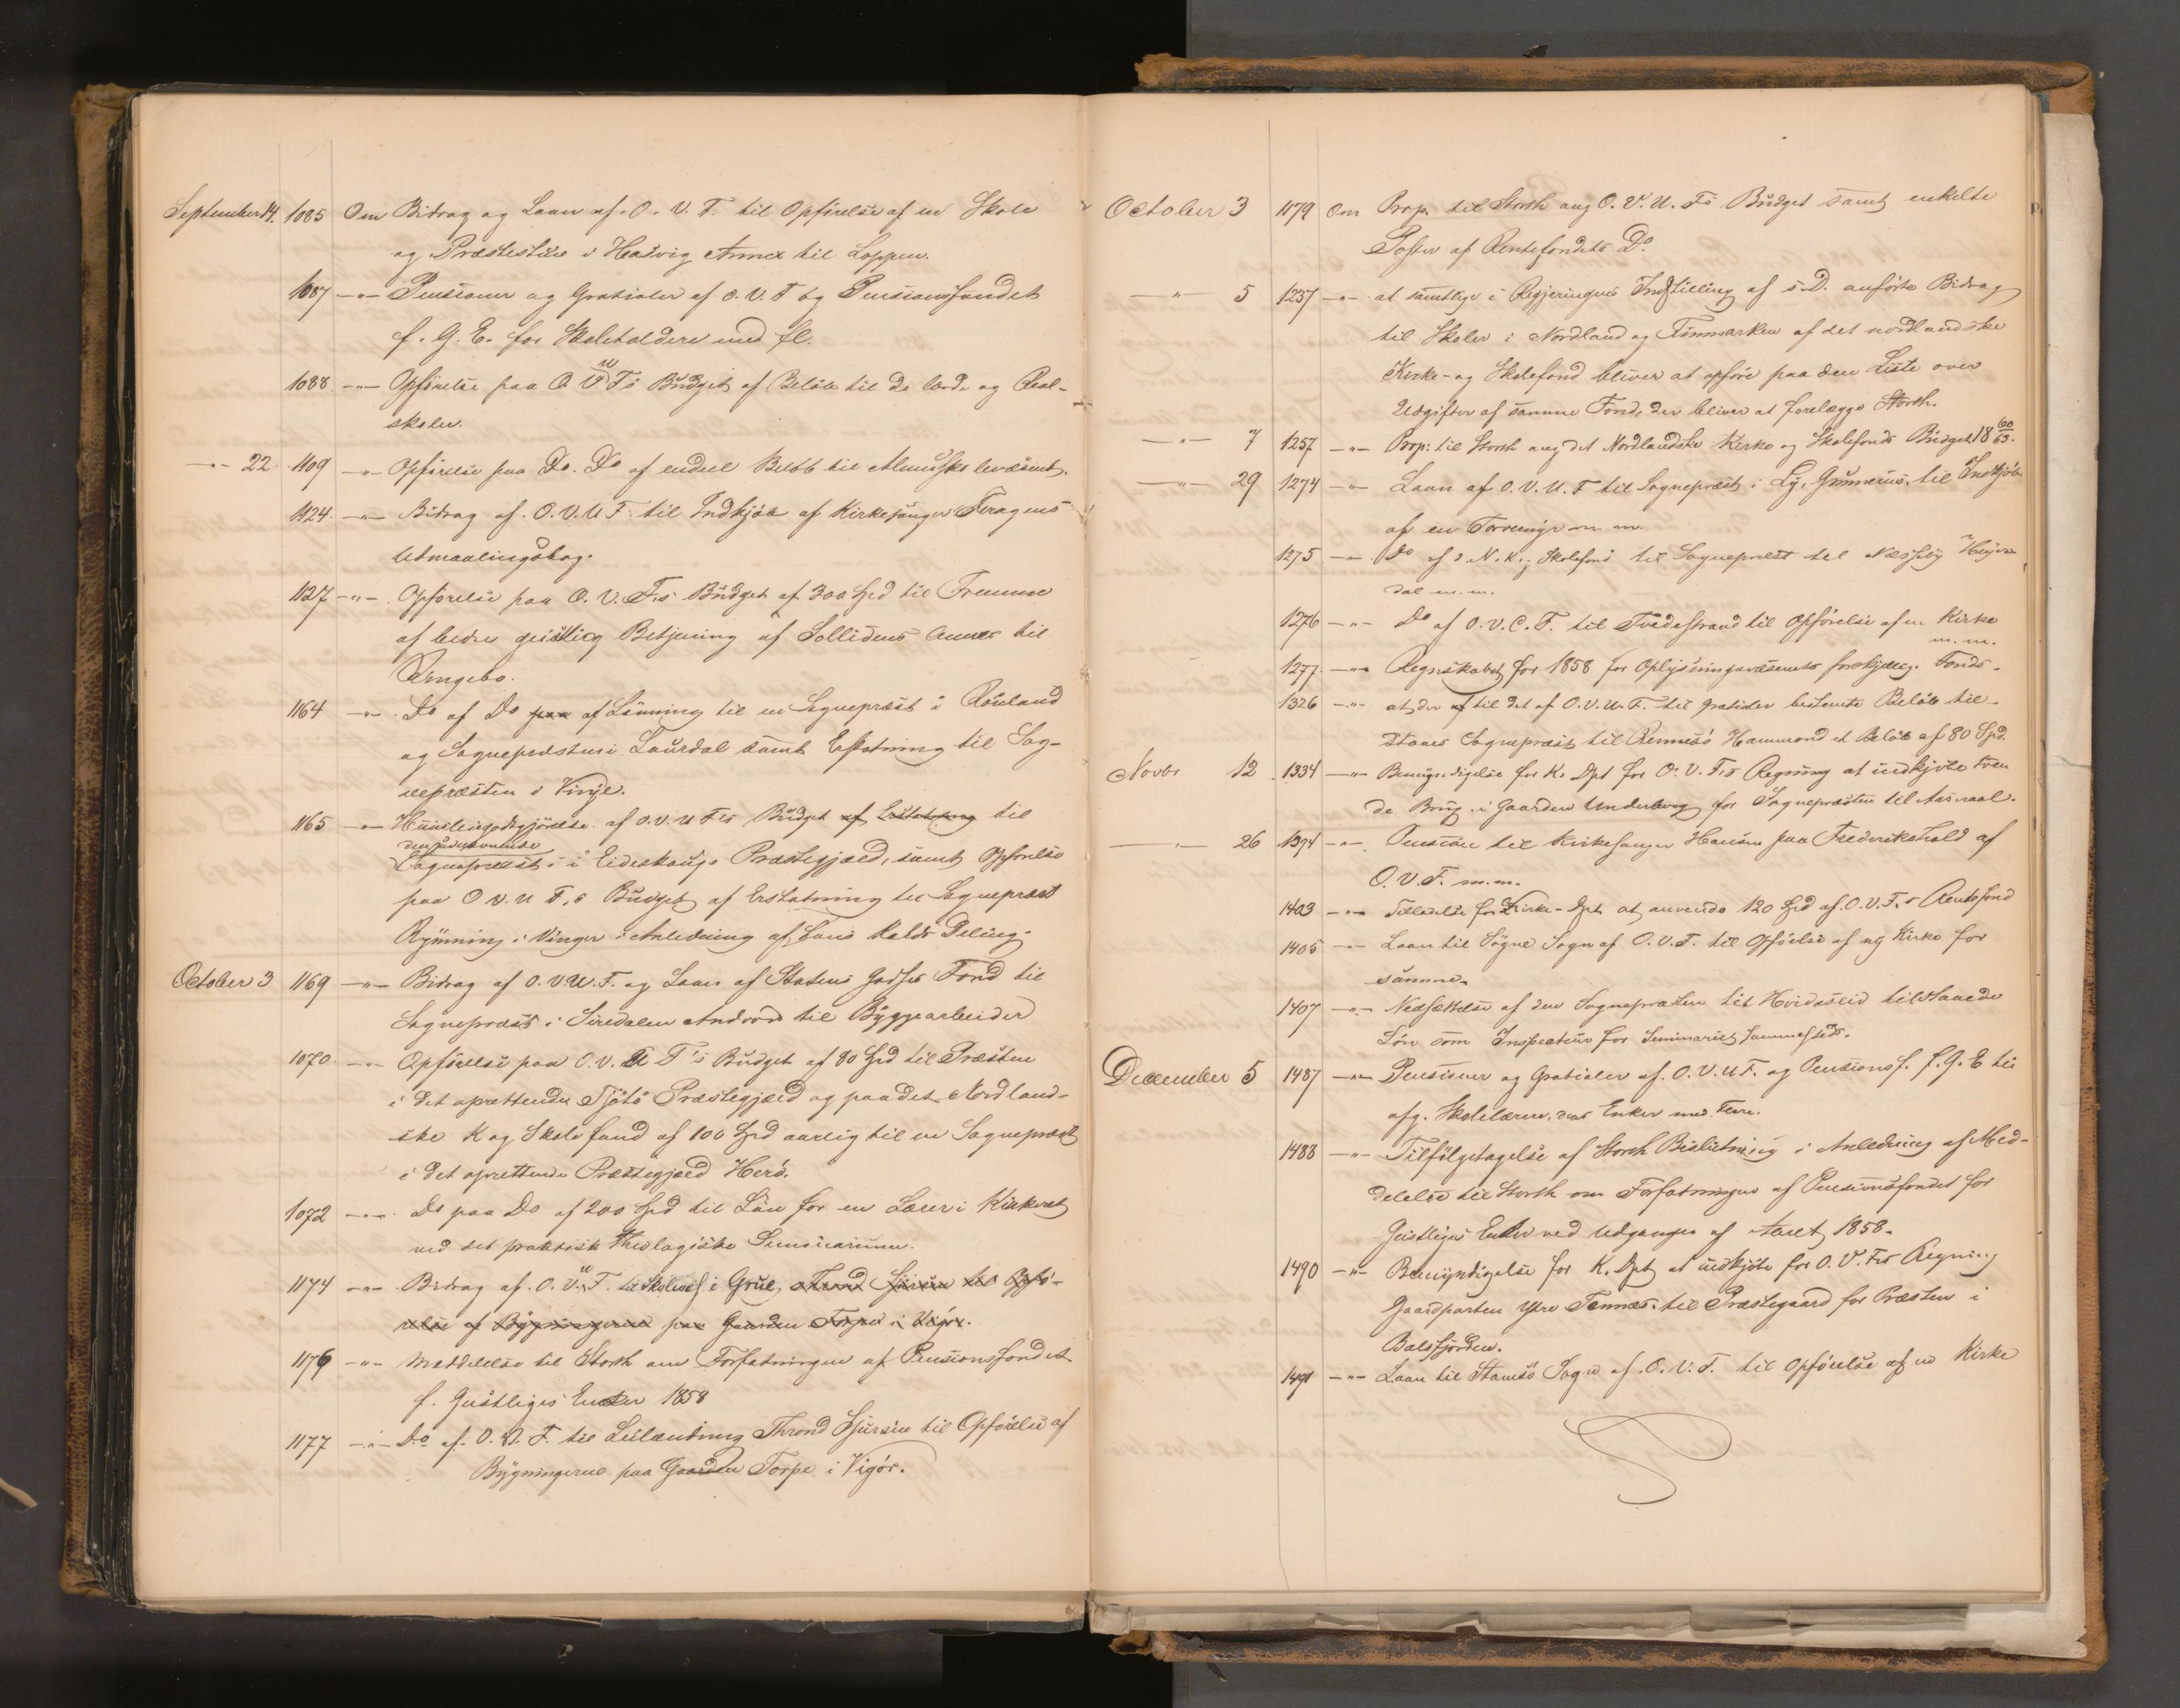 September 14. 1085 Om Bidrag og Laan af O. V. F. til Opførelse af en Skole
og Præstestue i Hasvig Annex til Loppen.
1087 —"— Pensioner og Gratialer af O. V. F og Pensionsfondet
f. G. E. for Skoleholdere med fl.
1088 —"— Opførelse paa O V U Fs Budget af Beløb til de lærde og Real-
skoler.
—"— 22 1109 —"— Opførelse paa Do. Do af endeel Beløb til Almueskolevæsenet.
1124 —"— Bidrag af O. V. U F til Indkjøb af Kirkesanger
Udmaalingsbog.
1127 —"— Opførelse paa O. V. F.s Budget af 300 Spd til Fremme
af bedre geistlig Betjening af Sollidens Annex til
Ringebo.
1164 —"— Do af Do paa af Lønning til en Sognepræst i Rauland
og Sognepræsten i Laurdal samt Erstatning til Sog-
nepræsten i Vinje.
1165 —"— Huusleiegodtgjørelse af O. V. U F's Budget af Erstatning til
den
Sognepræst i Eidskougs Præstegjæld, samt Opførelse
paa O V. U F,s Budget af Erstatning til Sognepræst
Rynning i Vinger i Anledning af Kalds Deling.
October 3 1169 —"— Bidrag af O. V. U. F. og Laan af Statens Godses Fond til
Sognepræst i Siredalen til Byggearbeider
1070 —"— Opførelse paa O. V. U F's Budget af 80 Spd til Præsten
i det oprettende Tjøtø Præstegjæld og paa det Nordland-
ske K og Skolefond af 100 Spd aarlig til en Sognepræst
i det oprettende Præstegjæld Herø.
1072 —"— Do paa Do af 200 Spd til Løn for en Lærer i Kirkeret
ved det praktisk theologiske Seminarium.
1174 —"— Bidrag af O. V. U F. til Skolevæs i Grue, Thrond Sjursen til Opfø-
relse af Bygningerne paa Gaarden Torpe i Vigør.
1176 —"— Meddelelse til Storth om Forfatningen af Pensionsfondet
f. Geistliges Enker 1858
1177 —"— Do af O. V. F. til Leilænding Thrond Sjursen til Opførelse af
Bygningerne paa Gaarden Torpe i Vigør.
October 3 1179 Om Prop. til Storth ang O. V. U. Fs Budget samt enkelte
Poster af Rentefondets Do
—"— 5 1237 —"— at samtlige i Regjeringens Indstilling af s. D. anførte Bidrag
til Skoler i Nordland og Finmarken af det nordlandske
Kirke- og Skolefond bliver at opføre paa den Liste over
Udgifter af samme Fond, der bliver at forelægge Storth.
—"— 7 1257 —"— Prop: til Storth ang det Nordlandske Kirke og Skolefonds Budget 18 60/63.
—"— 29 1274 —"— Laan af O. V. U. F til Sognepræst i Gunnerus til Indkjøb
af en Torvemyr m. m.
1275 —"— Do af d. N. K. og Skolefond til Sognepræst til Næsseby
dal m. m.
1276 —"— Do af O. V. C. F. til Tvedestrand til Opførelse af en Kirke
m. m.
1277 —"— Regnskabet for 1858 for Oplysningsvæsenets forskjellig. Fonds.
1326 —"— at der af til det af O. V. U. F. til Gratialer bestemte Beløb til-
staaes Sognepræst til Rennesø Hammond et Beløb af 80 Spd.
Novbr 12 1334 —"— Bemyndigelse for K. Dpt for O. V. F.s Regning at indkjøbe tven
de Brug i Gaarden Underberg for Sognepræsten til Aaseraal.
—"— 26 1394 —"— Pension til Kirkesanger Hansen paa Frederikshald af
O. V. F. m. m.
1403 —"— Tilladelse for Kirke-Dpt at anvende 120 Spd af O. V. F.s Rentefond
1405 —"— Laan til Søgne Sogn af O. V. F. til Opførelse af ny Kirke for
samme.
1407 —"— Nedsættelse af den Sognepræsten til Hvideseid tilstaaede
Løn som Inspecteur for Seminariet sammesteds.
December 5 1487 —"— Pensioner og Gratialer af O. V. U F. og Pensionsf. f. G. E til
afg. Skolelærere, deres Enker med Flere.
1488 —"— Tilfølgetagelse af Storth Beslutning i Anledning af Med-
delelse til Storth om Forfatningen af Pensionsfondet for
Geistliges Enker ved Udgangen af Aaret 1858.
1490 —"— Bemyndigelse for K. Dpt at indkjøbe for O. V. Fs Regning
Gaardparten Ytre Tennes til Præstegaard for Præsten i
Balsfjorden.
1491 —"— Laan til Stamsø Sogn af O. V. F. til Opførelse af en Kirke